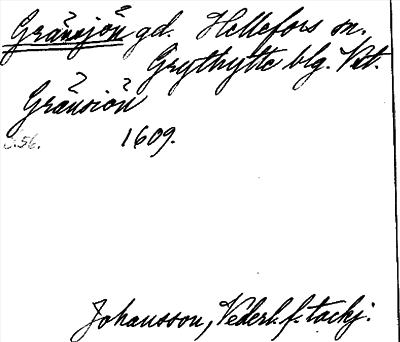 Gränsjön gd. Hellefors sn.
Grythytte blg. Vst.
Gränsiön
S. 56. 1609.
Johansson, Vederl. f. tackj.